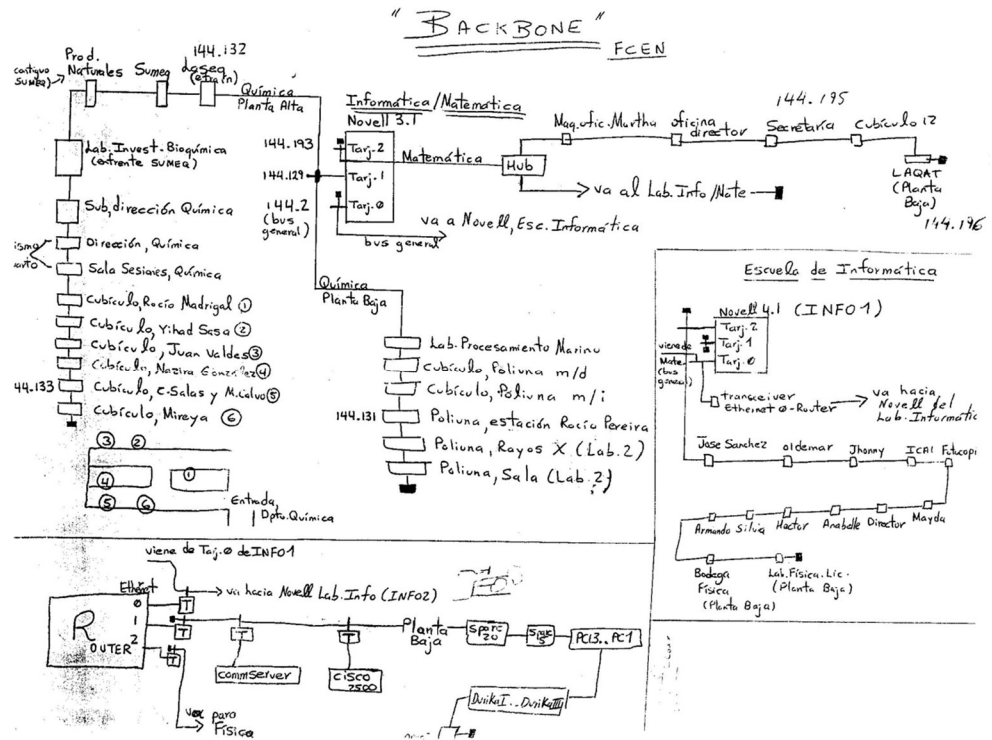 "BACKBONE"
FCEN
Prod.
Naturales
Sumeq
144.132
Laseq
contiguo
SUMEQ
Química
Planta Alta
Lab. Invest. Bioquímica
(enfrente SUMEQ)
Sub,dirección Química
Dirección, Química
Sala Sesiones, Química
Cubículo, Rocío Madrigal ①
Cubículo, Yihad Sasa ②
Cubículo, Juan Valdes ③
Cubículo, Nazira González ④
44.133
Cubículo, C. Salas y M. Calvo ⑤
Cubículo, Mireya ⑥
③ ②
④ ①
⑤ ⑥
Entrada,
Dpto. Química
Informática/Matemática
Novell 3.1
144.193
Tarj-2
144.129
Tarj. 1
144.2
(bus
general)
Tarj. 0
Matemática
Hub
bus general
va a Novell, Esc. Informática
va al Lab. Info/Mate
Maq. ofic. Martha
oficina
director
144.195
Secretaría
Cubículo 12
LAQAT
(Planta
Baja)
144.196
Química
Planta Baja
Lab. Procesamiento Marino
Cubículo, Poliuna m/d
Cubículo, Poliuna m/i
144.131
Poliuna, estación Rocío Pereira
Poliuna, Rayos X (Lab. 2)
Poliuna, Sala (Lab. 2)
Escuela de Informática
Novell 4.1 (INFO1)
Tarj-2
Tarj. 1
Tarj. 0
viene de
Mate.
(bus
general)
transceiver
Ethernet 0-Router
va hacia
Novell del
Lab. Informátic
Jose Sanchez
oldemar
Jhonny
ICAI
Fotocopi
Armando
Silvia
Hector
Anabelle
Director
Mayda
Bodega
Física
(Planta Baja)
Lab. Física. Lic.
(Planta Baja)
viene de Tarj. 0 de INFO1
Ethernet
0
1
2
ROUTER
T
T
T
va hacia Novell Lab. Info (INFO2)
T
commServer
T
CISCO
2500
Planta
Baja
Sparc
20
Sparc
5
PC13..PC1
DurikaI..DurikaIII
va para
Física